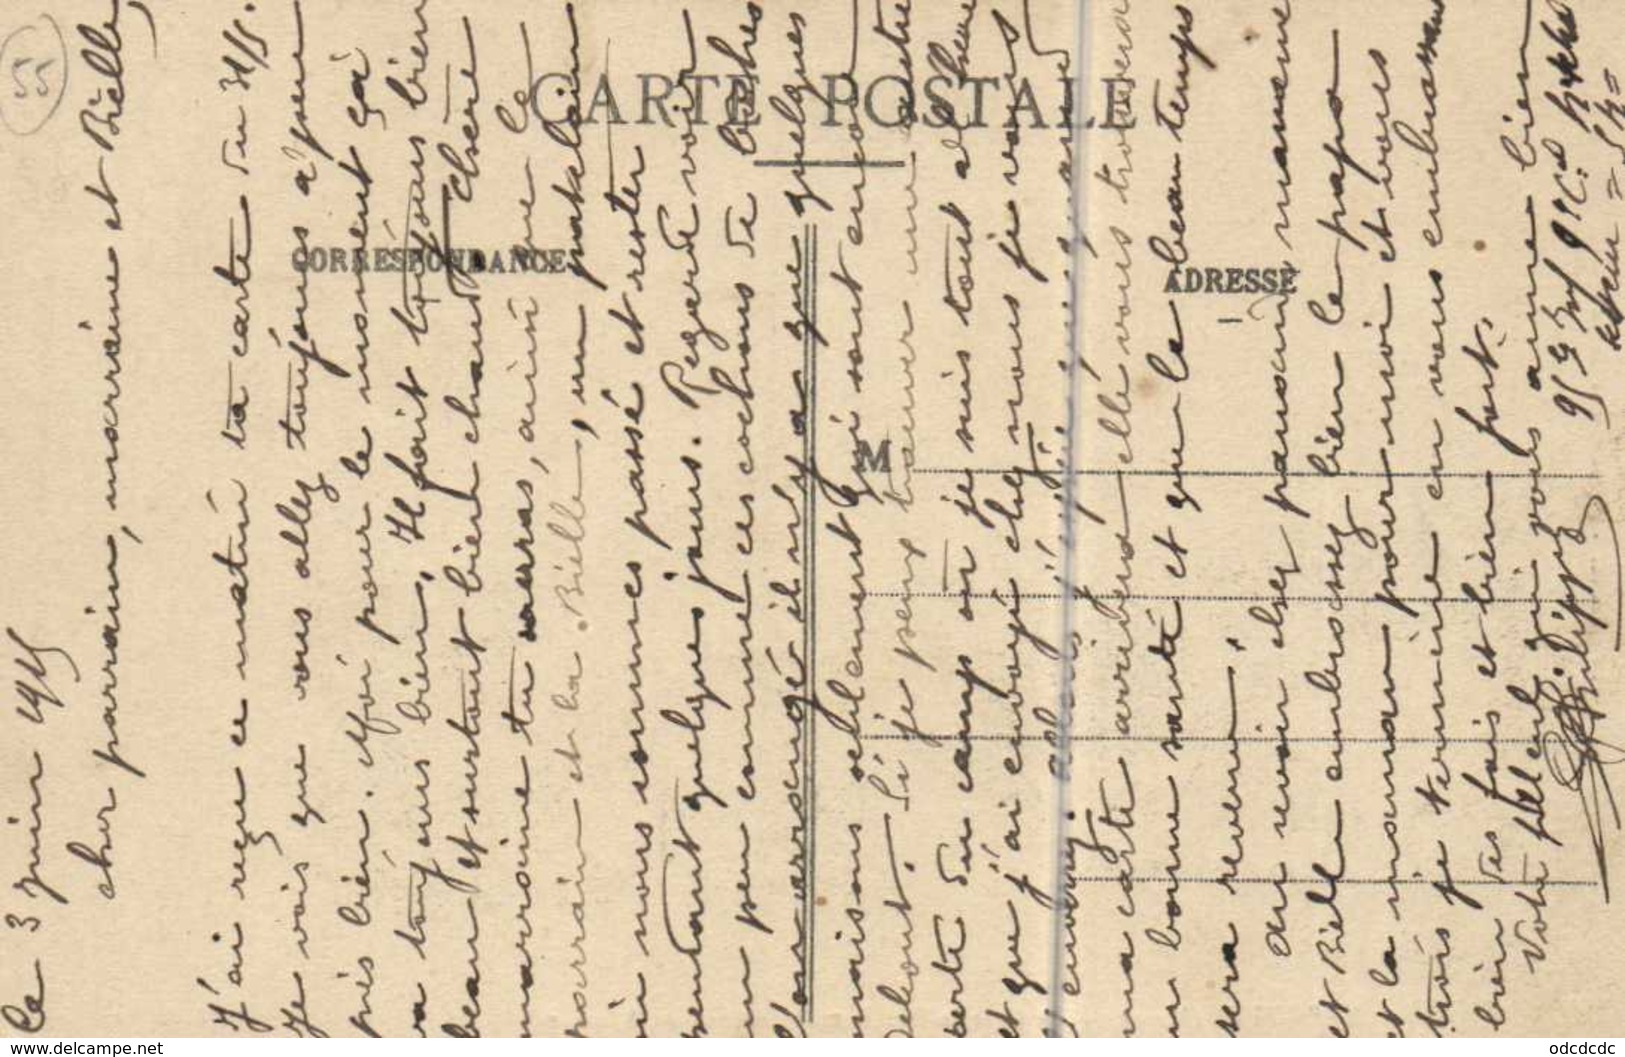 Le 3 juin 1915
cher parrain, marraine et Bielle,
J'ai reçu ce matin ta carte du 31/5.
Je vois que vous allez toujours à peu
près bien. Moi pour le moment çà
va toujours bien. Il fait toujours bien
beau et surtout bien chaud. Chère
marraine tu verras, ainsi que le
parrain et la Bielle, un patelain
où nous sommes passé et rester
pendant quelques jours. Regarde voir
un peu comme ces cochons de boches
l'on arrangé il n'y a que quelques
maisons seulement qui sont encore
debout. Si je peux trouver une autre
carte du camp où je suis tout à l'heure
et que j'ai envoyé chez nous je vous
ma carte arrivera elle vous trouvera
en bonne santé et que le beau temps
sera revenu.
Au revoir chez parrain marraine
et Bielle embrassez bien le papa
et la maman pour moi et vous
trois je termine en vous embrassant
bien des fois et bien fort.
Votre qui vous aime bien
Philippe
CARTE POSTALE
CORRESPONDANCE
ADRESSE
M
www.delcampe.net
odcdcdc